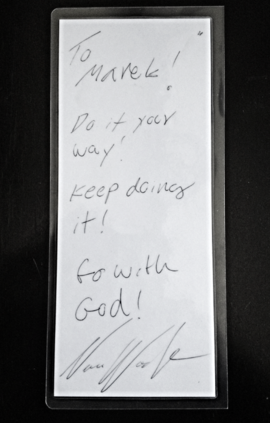 To
Marek!
Do it your
way!
Keep doing
it!
Go with
God!